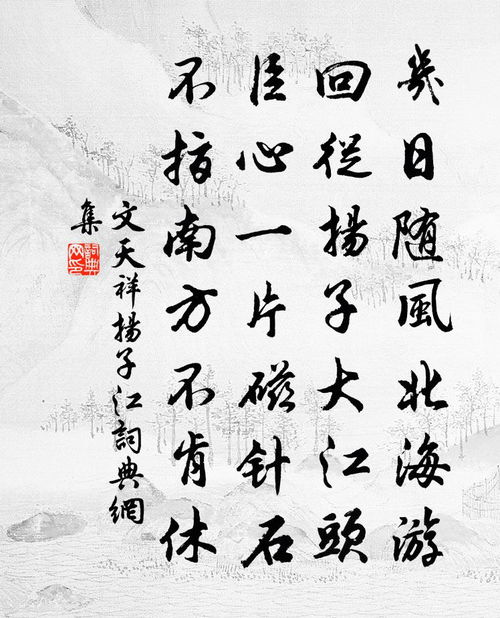 幾日随風北海游
回從揚子大江頭
臣心一片磁針石
不指南方不肯休
文天祥揚子江詞典網
集